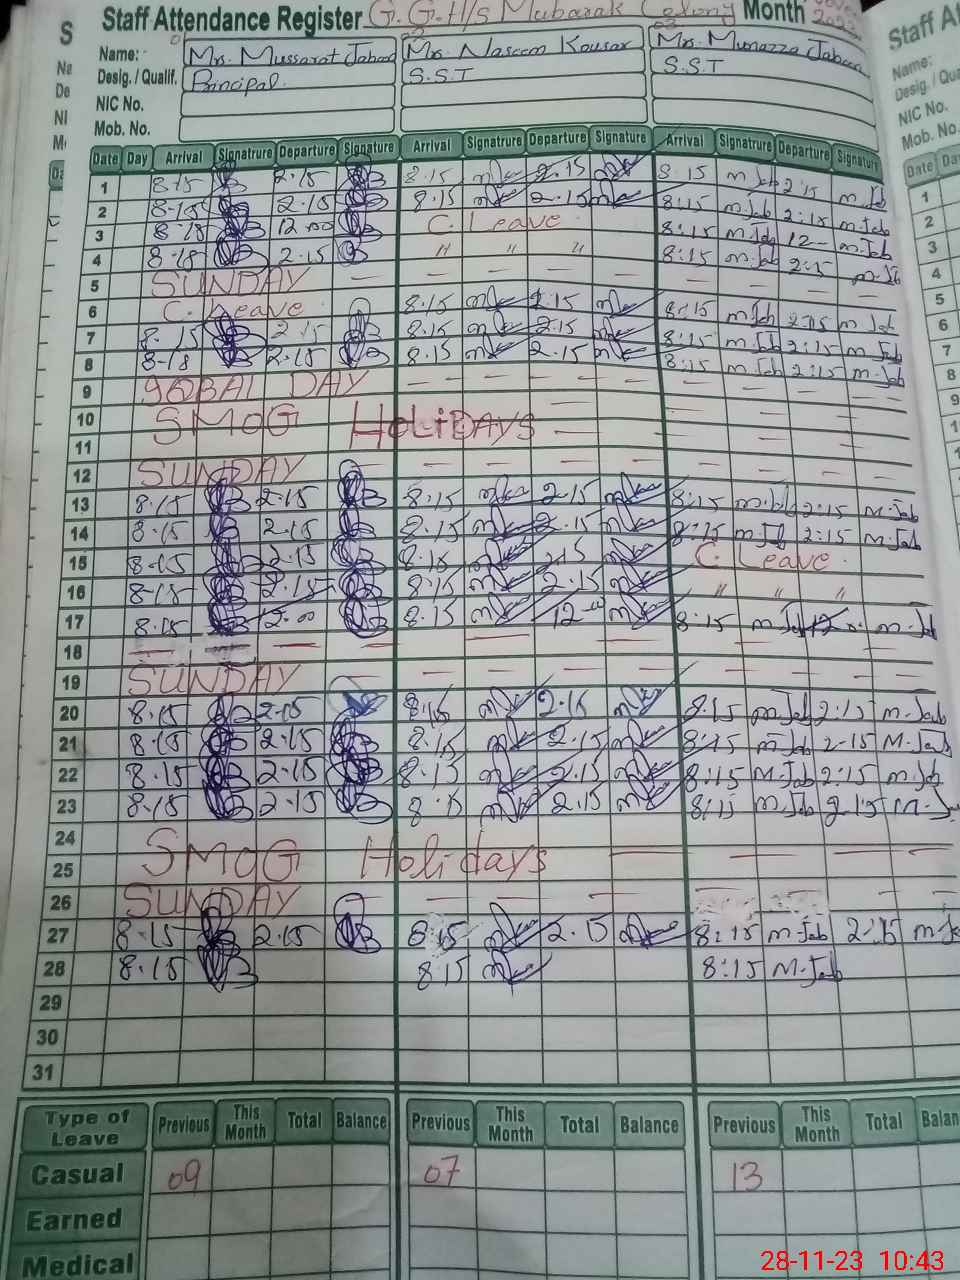 Staff Attendance Register G.G.H/s Mubarak Colony Month
Name: Mrs. Mussarat Jabeen Mrs. Naseem Kousar Mrs. Munazza Jabeen
Desig. / Qualif. Principal. S.S.T S.S.T
NIC No.
Mob. No.
Date Day Arrival Signatrure Departure Signature Arrival Signatrure Departure Signature Arrival Signatrure Departure Signature
1 8.15 2.15 8.15 2.15 8.15 m Jab 2.15 m Jab
2 8.15 2.15 8.15 2.15 8:15 m.Jab 2:15 m.Jab
3 8.15 12.00 C. Leave 8:15 m Jab 12 m.Jab
4 8.15 2.15 " " " 8:15 m.Jab 2:15 m.Jab
5 SUNDAY
6 C. Leave 8.15 2.15 8:15 m Jab 2:15 m Jab
7 8.15 2.15 8.15 2.15 8:15 m.Jab 2:15 m Jab
8 8.15 2.15 8.15 2.15 8:15 m Jab 2:15 m.Jab
9 IQBAL DAY
10 SMOG HOLIDAYS
11
12 SUNDAY
13 8.15 2.15 8:15 2.15 8:15 2:15 M.Jab
14 8.15 2.15 8.15 2.15 8:15 m Jab 2:15 M.Jab
15 8.15 2.15 8.15 2.15 C. Leave
16 8.15 2.15 8.15 2.15 " " "
17 8.15 12.00 8.15 12 8:15 m Jab 12 m.Jab
18
19 SUNDAY
20 8.15 2.15 8.15 2.15 8:15 m.Jab 2:15 m.Jab
21 8.15 2.15 8.15 2.15 8:15 m.Jab 2-15 M.Jab
22 8.15 2.15 8.15 2.15 8:15 M.Jab 2:15 m.Jab
23 8.15 2.15 8.15 2.15 8:15 m.Jab 2:15
24
25 SMOG Holidays
26 SUNDAY
27 8.15 2.15 8.15 2.15 8:15 m.Jab 2:15
28 8.15 8.15 8:15 M.Jab
29
30
31
Type of Leave Previous This Month Total Balance Previous This Month Total Balance Previous This Month Total
Casual 09 07 13
Earned
Medical
28-11-23 10:43